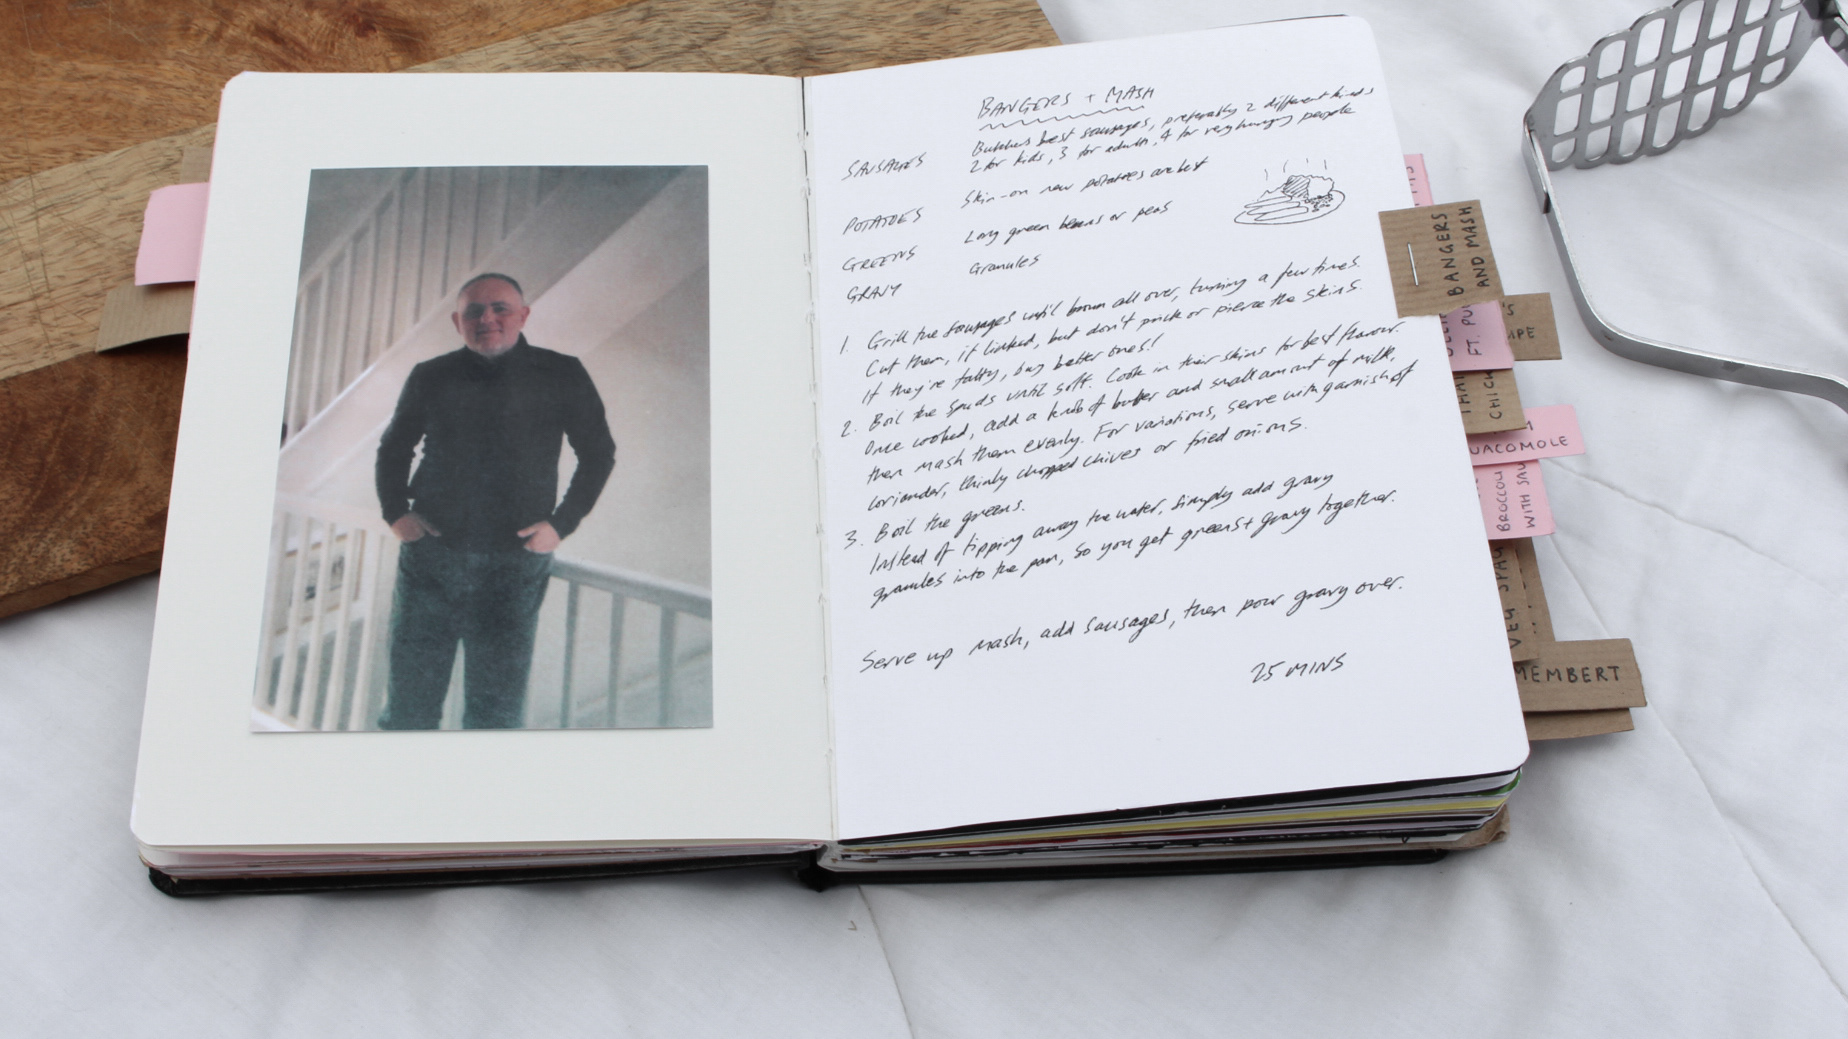 BANGERS + MASH
SAUSAGES
Butchers best sausages, preferably 2 different kinds
2 for kids, 3 for adults, 4 for very hungry people
POTATOES
Skin-on new potatoes are best
GREENS
Long green beans or peas
GRAVY
Granules
1. Grill the sausages until brown all over, turning a few times.
Cut them, if linked, but don't prick or pierce the skins.
If they're fatty, buy better ones!
2. Boil the spuds until soft. Cook in their skins for best flavour.
Once cooked, add a knob of butter and small amount of milk,
then mash them evenly. For variations, serve with garnish of
coriander, thinly chopped chives or fried onions.
3. Boil the greens.
Instead of tipping away the water, simply add gravy
granules into the pan, so you get greens + gravy together.
Serve up mash, add sausages, then pour gravy over.
25 MINS
BANGERS
AND MASH
FT. PU
THAI
CHICK
UACOMOLE
BROCCOLI
WITH SAU
VEG SPAG
MEMBERT